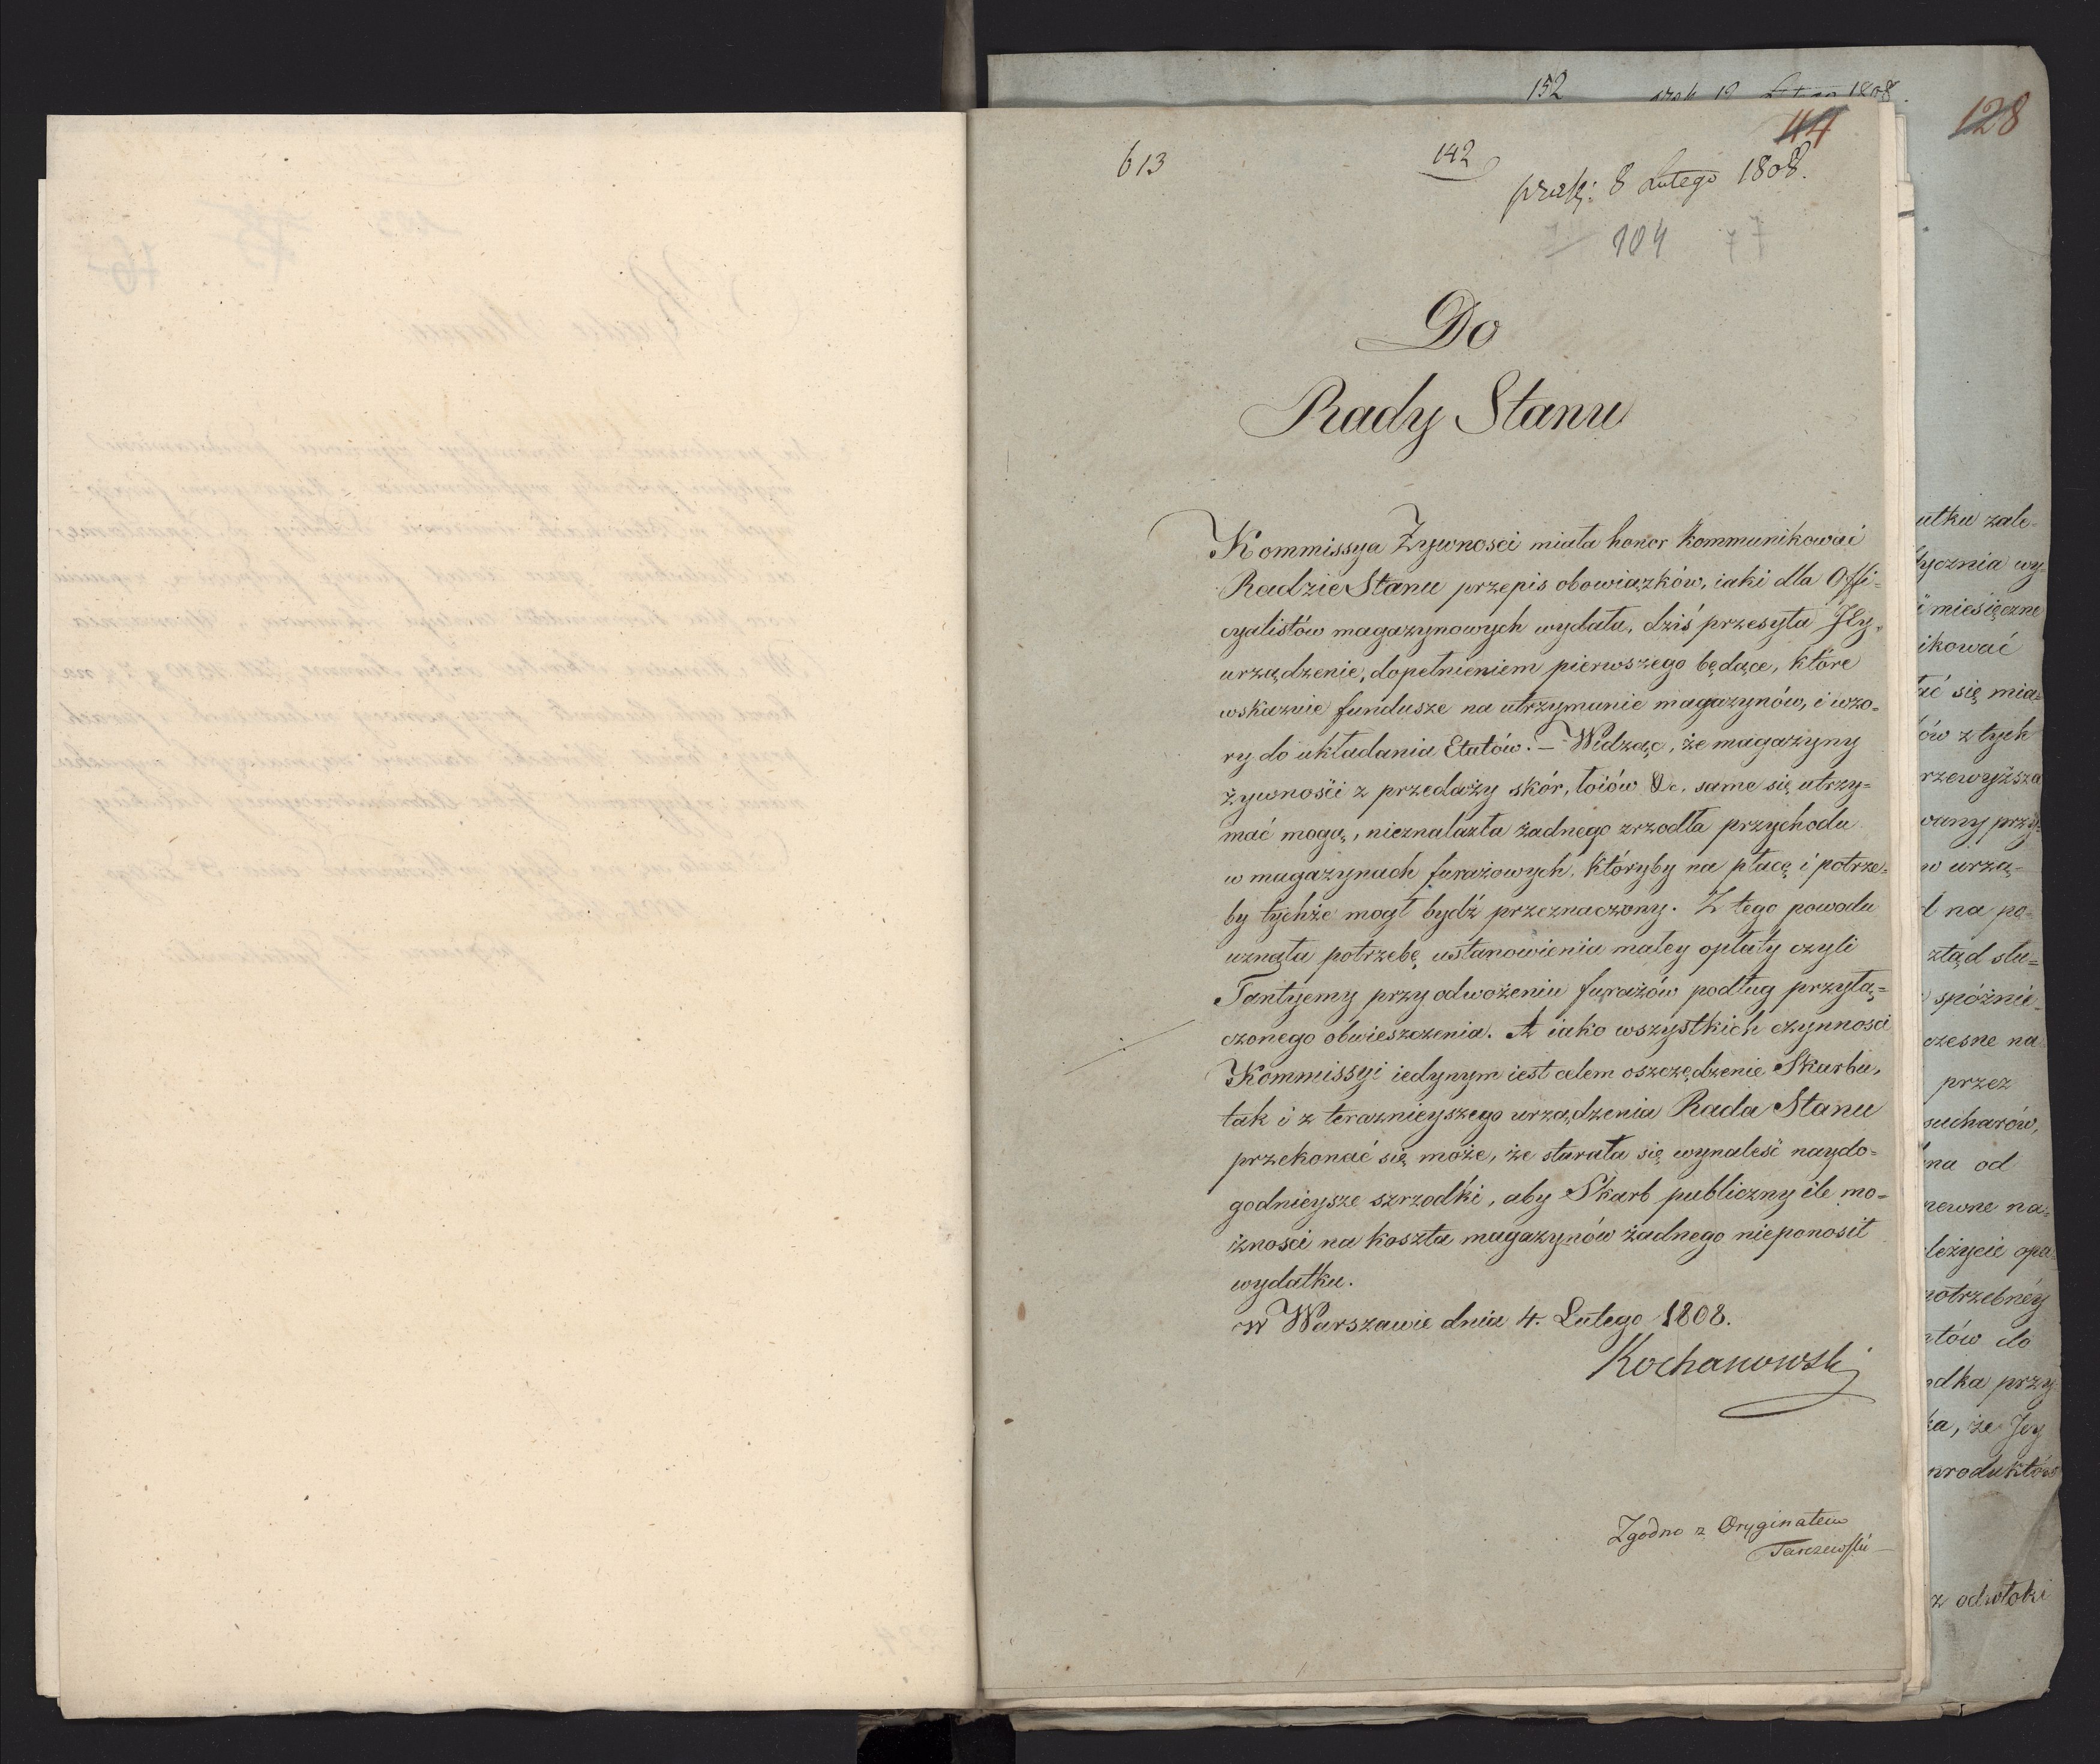 152
1808.
128
44
613
142
praes: 8 Lutego 1808.
104 77
Do
Rady Stanu
Kommissya Żywnosci miała honor kommunikować
Radzie Stanu przepis obowiązków, iaki dla Offi=
cyalistów magazynowych wydała, dziś przesyła Jey
urządzenie, dopełnieniem pierwszego będące, które
wskazuie fundusze na utrzymanie magazynów, i wzo=
ry do układania Etatów. – Widząc, że magazyny
żywności z przedaży skór, łoiów &c. same się utrzy=
mać mogą, nieznalazła żadnego zrzodła przychodu
w magazynach furażowych, któryby na płacę i potrze=
by tychże mogł bydź przeznaczony. Z tego powodu
uznała potrzebę ustanowienia małey opłaty czyli
Tantyemy przy odwożeniu furażów podług przyłą=
czonego obwieszczenia. A iako wszystkich czynnosci
Kommissyi iedynym iest celem oszczędzenie Skarbu,
tak i z teraznieyszego urządzenia Rada Stanu
przekonać się może, że starała się wynaleść naydo=
godnieysze szrzodki, aby Skarb publiczny ile mo=
żnosci na koszta magazynów żadnego nieponosił
wydatku.
w Warszawie dnia 4. Lutego 1808.
Kochanowski
Zgodno z Oryginałem
Tarczewski
utku zale=
tycznia wy=
i miesięczne
ikować
ać się mia=
ów z tych
rzewyższa
wany przy=
w urzą=
d na po=
ztąd słu=
spóźnie
czesne na
przez
sucharów,
na od
pewne na=
leżycie opa
potrzebnéy
tów do
odka przy
ka, że Jey
produktów
z odwłoki